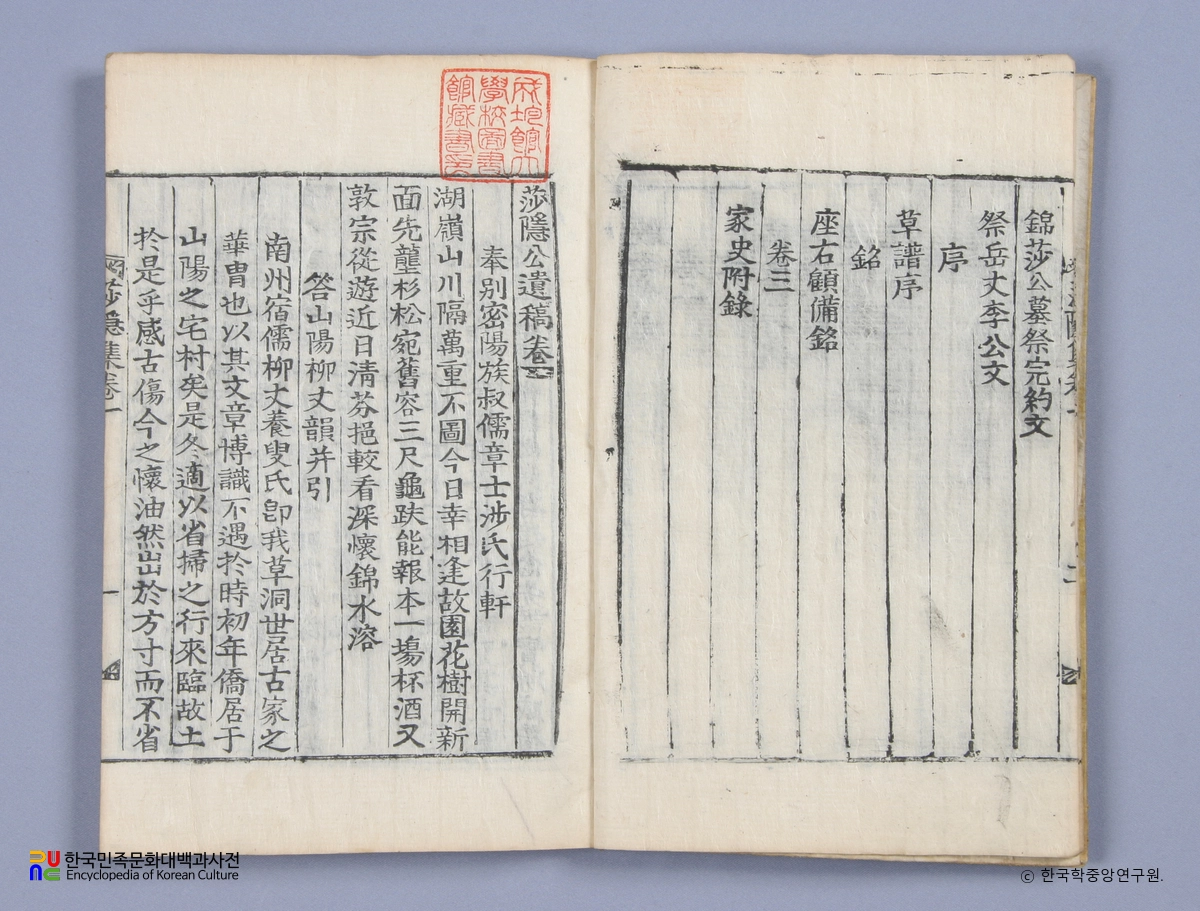 錦莎公墓祭完約文
祭岳丈李公文
序
草譜序
銘
座右顧備銘
卷三
家史附錄
成均館大
學校圖書
館藏書印
莎隱公遺稿卷一
奉別密陽族叔儒章士涉氏行軒
湖嶺山川隔萬重不圖今日幸相逢故園花樹開新
面先壟杉松宛舊容三尺龜趺能報本一場杯酒又
敦宗從遊近日清芬挹較看深懷錦水溶
答山陽柳丈韻并引
南州宿儒柳丈養叟氏卽我草洞世居古家之
華胄也以其文章博識不遇於時初年僑居于
山陽之宅村矣是冬適以省掃之行來臨故土
於是乎感古傷今之懷油然出於方寸而不省
莎隱集卷一
一
한국민족문화대백과사전
Encyclopedia of Korean Culture
ⓒ 한국학중앙연구원.